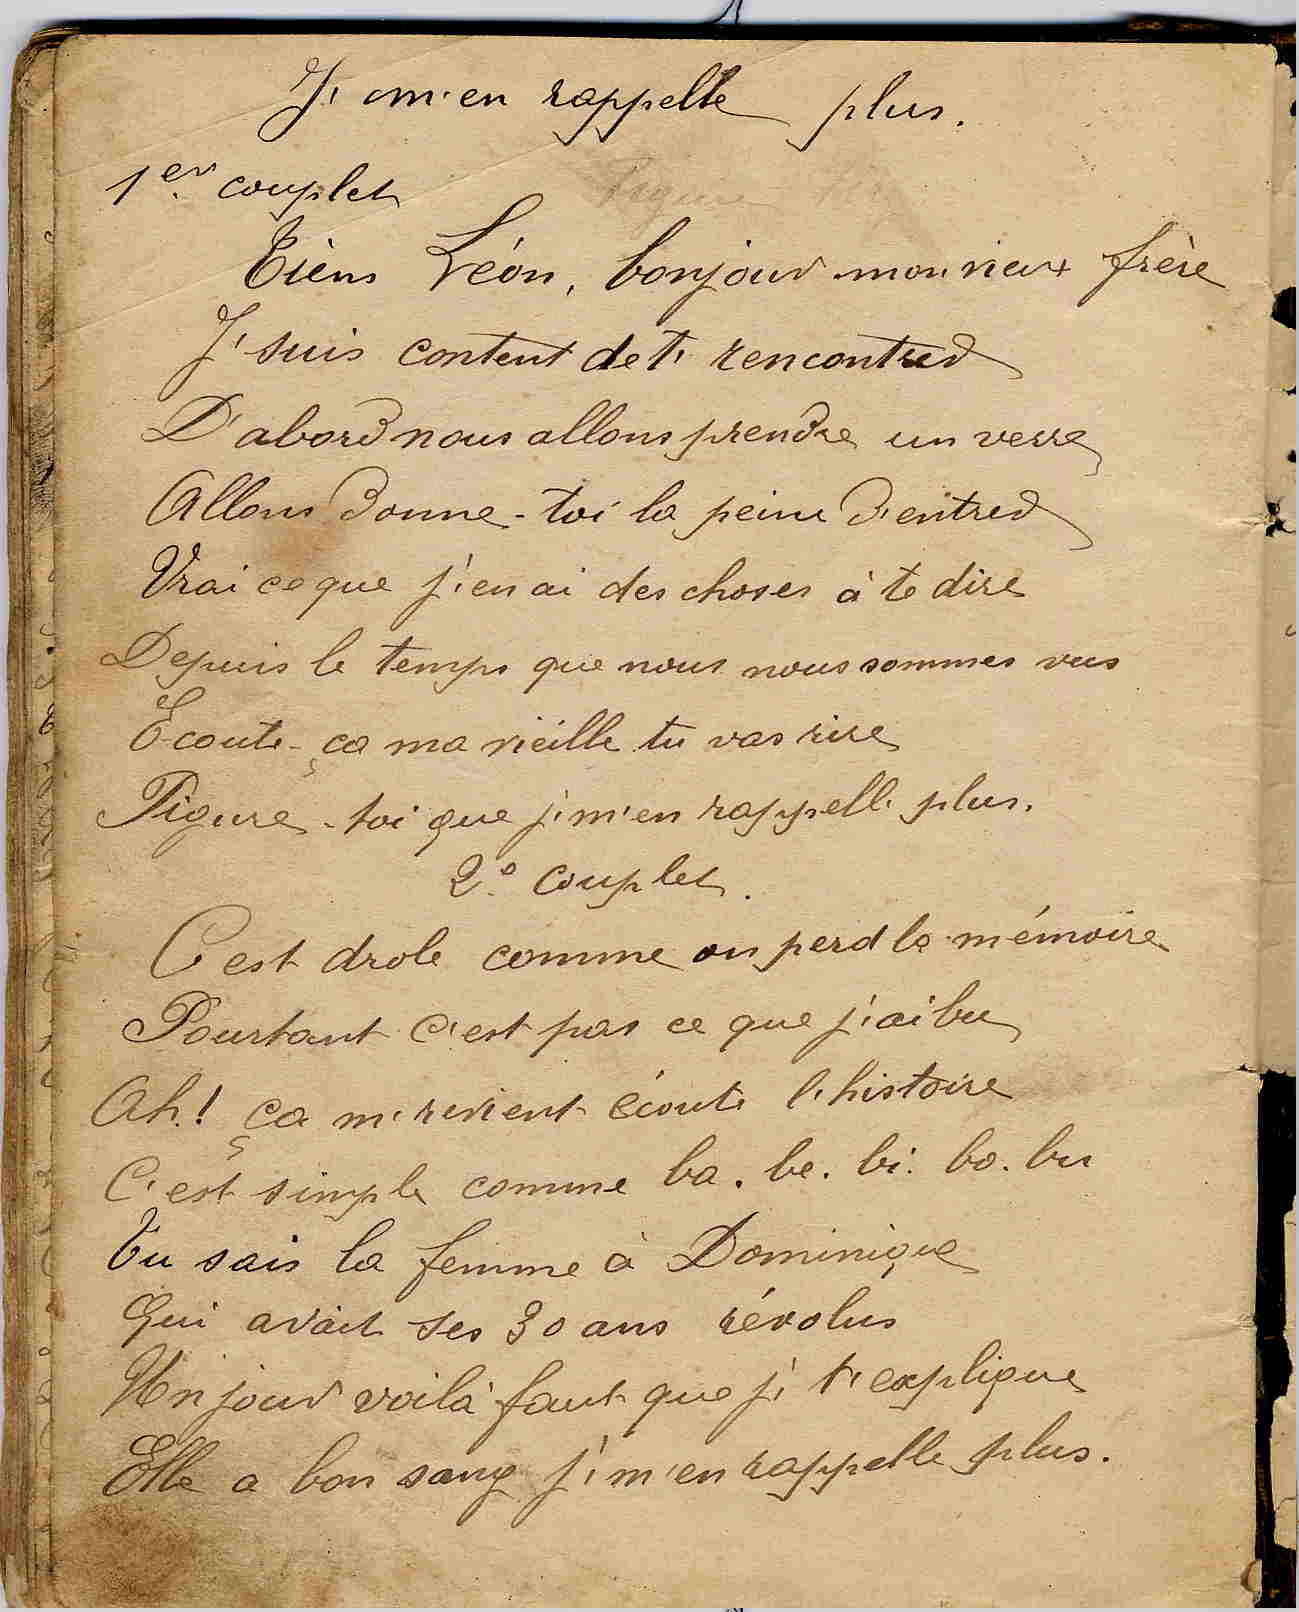 J' m'en rappelle plus.
1er couplet
Tièns Léon, bonjour mon vieux frère
J' suis content de t' rencontrer
D'abord nous allons prendre un verre
Allons donne-toi la peine d'entrer
Vrai ce que j'en ai des choses à te dire
Depuis le temps que nous nous sommes vus
Ecoute-ça ma vieille tu vas rire
Figure-toi que j' m'en rappell' plus.
2e couplet.
C'est drole comme on perd la mémoire
Pourtant c'est pas ce que j'ai bu
Ah! ça m' revient écout' l'histoire
C'est simple comme ba. be. bi. bo. bu
Tu sais la femme à Dominique
Qui avait ses 30 ans révolus
Un jour voilà faut que j' t'explique
Elle a bon sang j' m'en rappelle plus.